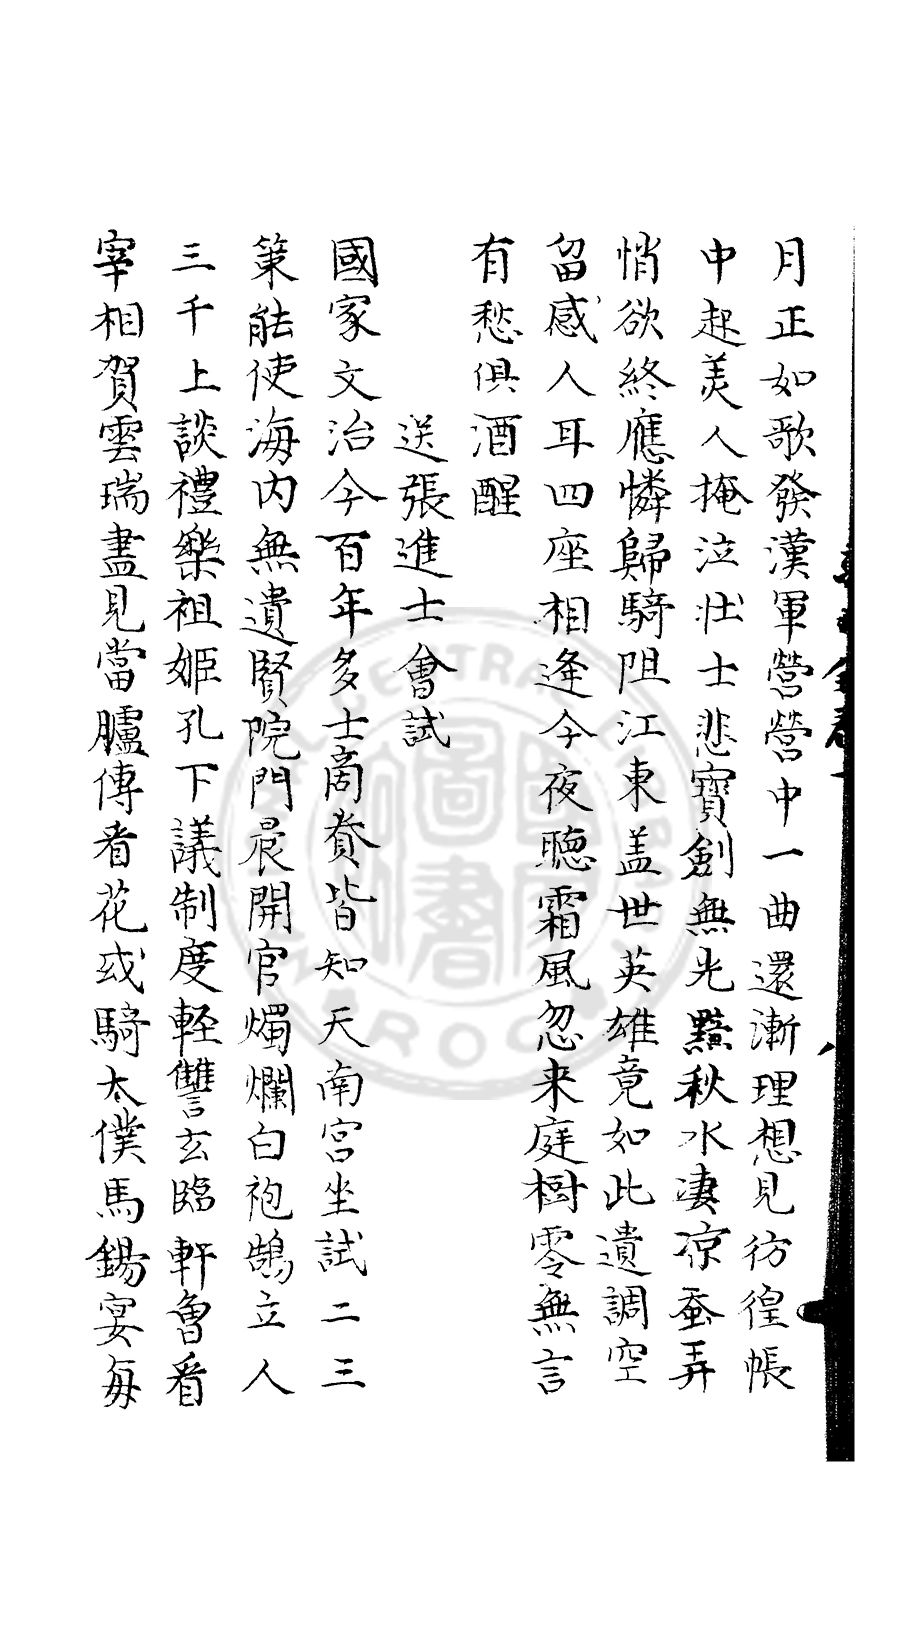 月正如歌發漢軍營營中一曲還漸理想見彷徨帳
中起美人掩泣壯士悲寶劍無光黯秋水淒涼蛩弄
悄欲終應憐歸騎阻江東盖世英雄竟如此遺調空
留感人耳四座相逢今夜聽霜風忽来庭樹零無言
有愁俱酒醒
送張進士會試
國家文治今百年多士商賚皆知天南宮坐試二三
策能使海内無遺賢院門晨開官燭爛白袍鵠立人
三千上談禮樂祖姬孔下議制度軽讐玄臨軒魯看
宰相賀雲瑞盡見當臚傳看花或騎太僕馬錫宴每